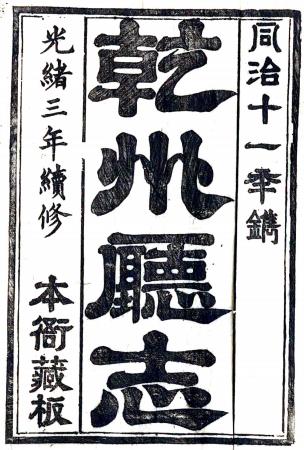 同治十一年鐫
乾州廳志
光緒三年續修
本衙藏板